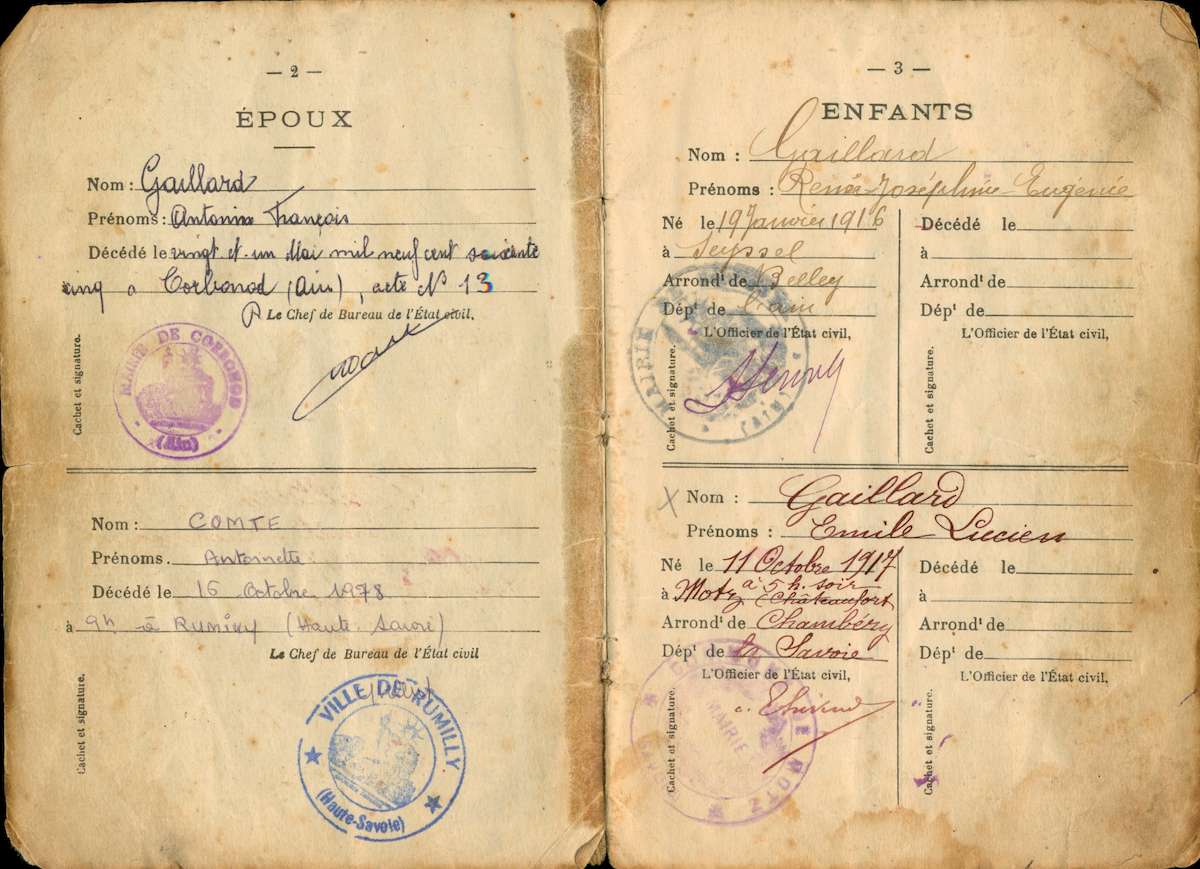 — 2 —
ÉPOUX
Nom : Gaillard
Prénoms : Antonin François
Décédé le vingt et un Mai mil neuf cent soixante
cinq à Corbonod (Ain), acte N° 13
Le Chef de Bureau de l'État civil,
Cachet et signature.
MAIRIE DE CORBONOD
(Ain)
Nom : COMTE
Prénoms. Antoinette
Décédé le 16 Octobre 1978
à 9h à RUMILLY (Haute Savoie)
Le Chef de Bureau de l'État civil
Cachet et signature.
VILLE DE RUMILLY
(Haute-Savoie)
— 3 —
ENFANTS
Nom : Gaillard
Prénoms : Renée Joséphine Eugénie
Né le 19 Janvier 1916
à Seyssel
Arrondt de Belley
Dépt de l'ain
L'Officier de l'État civil,
Cachet et signature.
MAIRIE
(AIN)
Décédé le
à
Arrondt de
Dépt de
L'Officier de l'État civil,
Cachet et signature.
X Nom : Gaillard
Prénoms : Emile Lucien
Né le 11 Octobre 1917
à 5 h. soir
à Motz (Châteaufort
Arrondt de Chambéry
Dépt de la Savoie
L'Officier de l'État civil,
Cachet et signature.
MAIRIE
MOTZ
Décédé le
à
Arrondt de
Dépt de
L'Officier de l'État civil,
Cachet et signature.